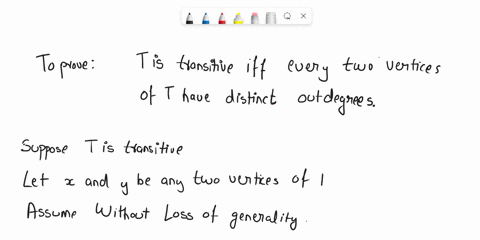 To prove: T is transitive iff every two vertices
of T have distinct outdegrees.
Suppose T is transitive
Let x and y be any two vertices of T
Assume Without Loss of generality.